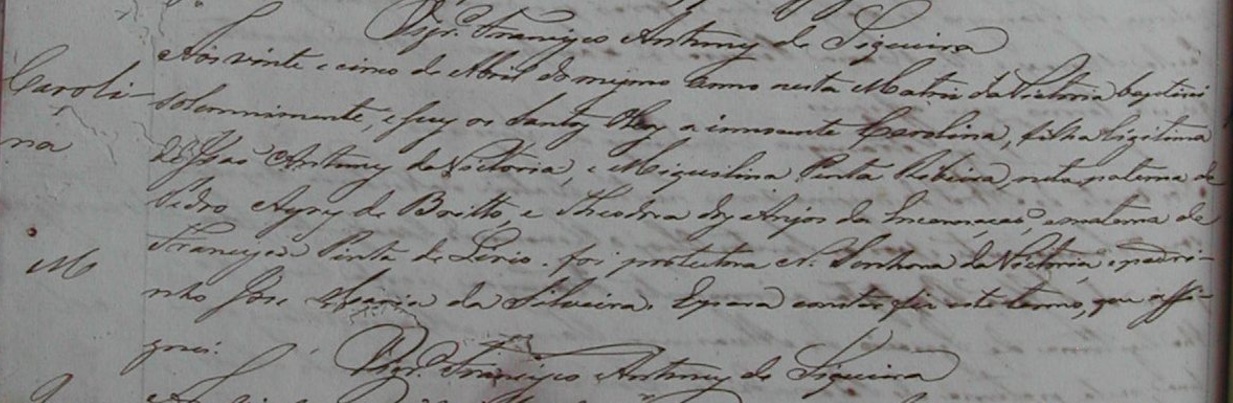 Vigr.º Francisco Antunes de Siqueira
Caroli-
na
M
Aos vinte e cinco de Abril do mesmo anno nesta Matriz da Victoria baptizei
solemnemente, e puz os Santos Oleos a innocente Carolina, filha legitima
de João Antunes da Victoria, e Miguelina Pinta Ribeira, neta paterna de
Pedro Ayres de Britto, e Theodora dos Anjos da Encarnação, e materna de
Francisca Pinta de Lirio. foi protectora N. Senhora da Victoria, e padri-
nho José Maria da Silveira. E para constar fiz este termo, que assi-
gnei.
Vigr.º Francisco Antunes de Siqueira